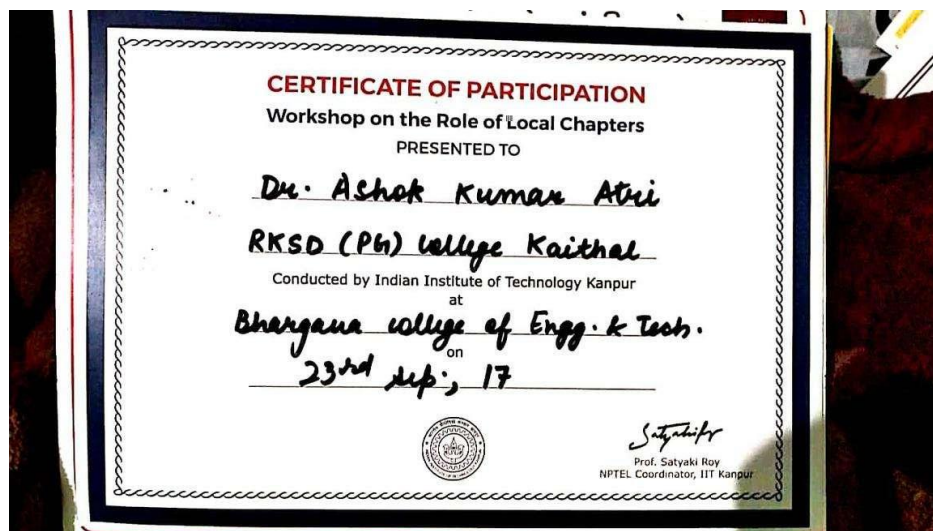 CERTIFICATE OF PARTICIPATION
Workshop on the Role of Local Chapters
PRESENTED TO
Dr. Ashok Kumar Atri
RKSD (PG) College Kaithal
Conducted by Indian Institute of Technology Kanpur
at
Bhargava college of Engg. & Tech.
on
23rd sep., 17
Prof. Satyaki Roy
NPTEL Coordinator, IIT Kanpur